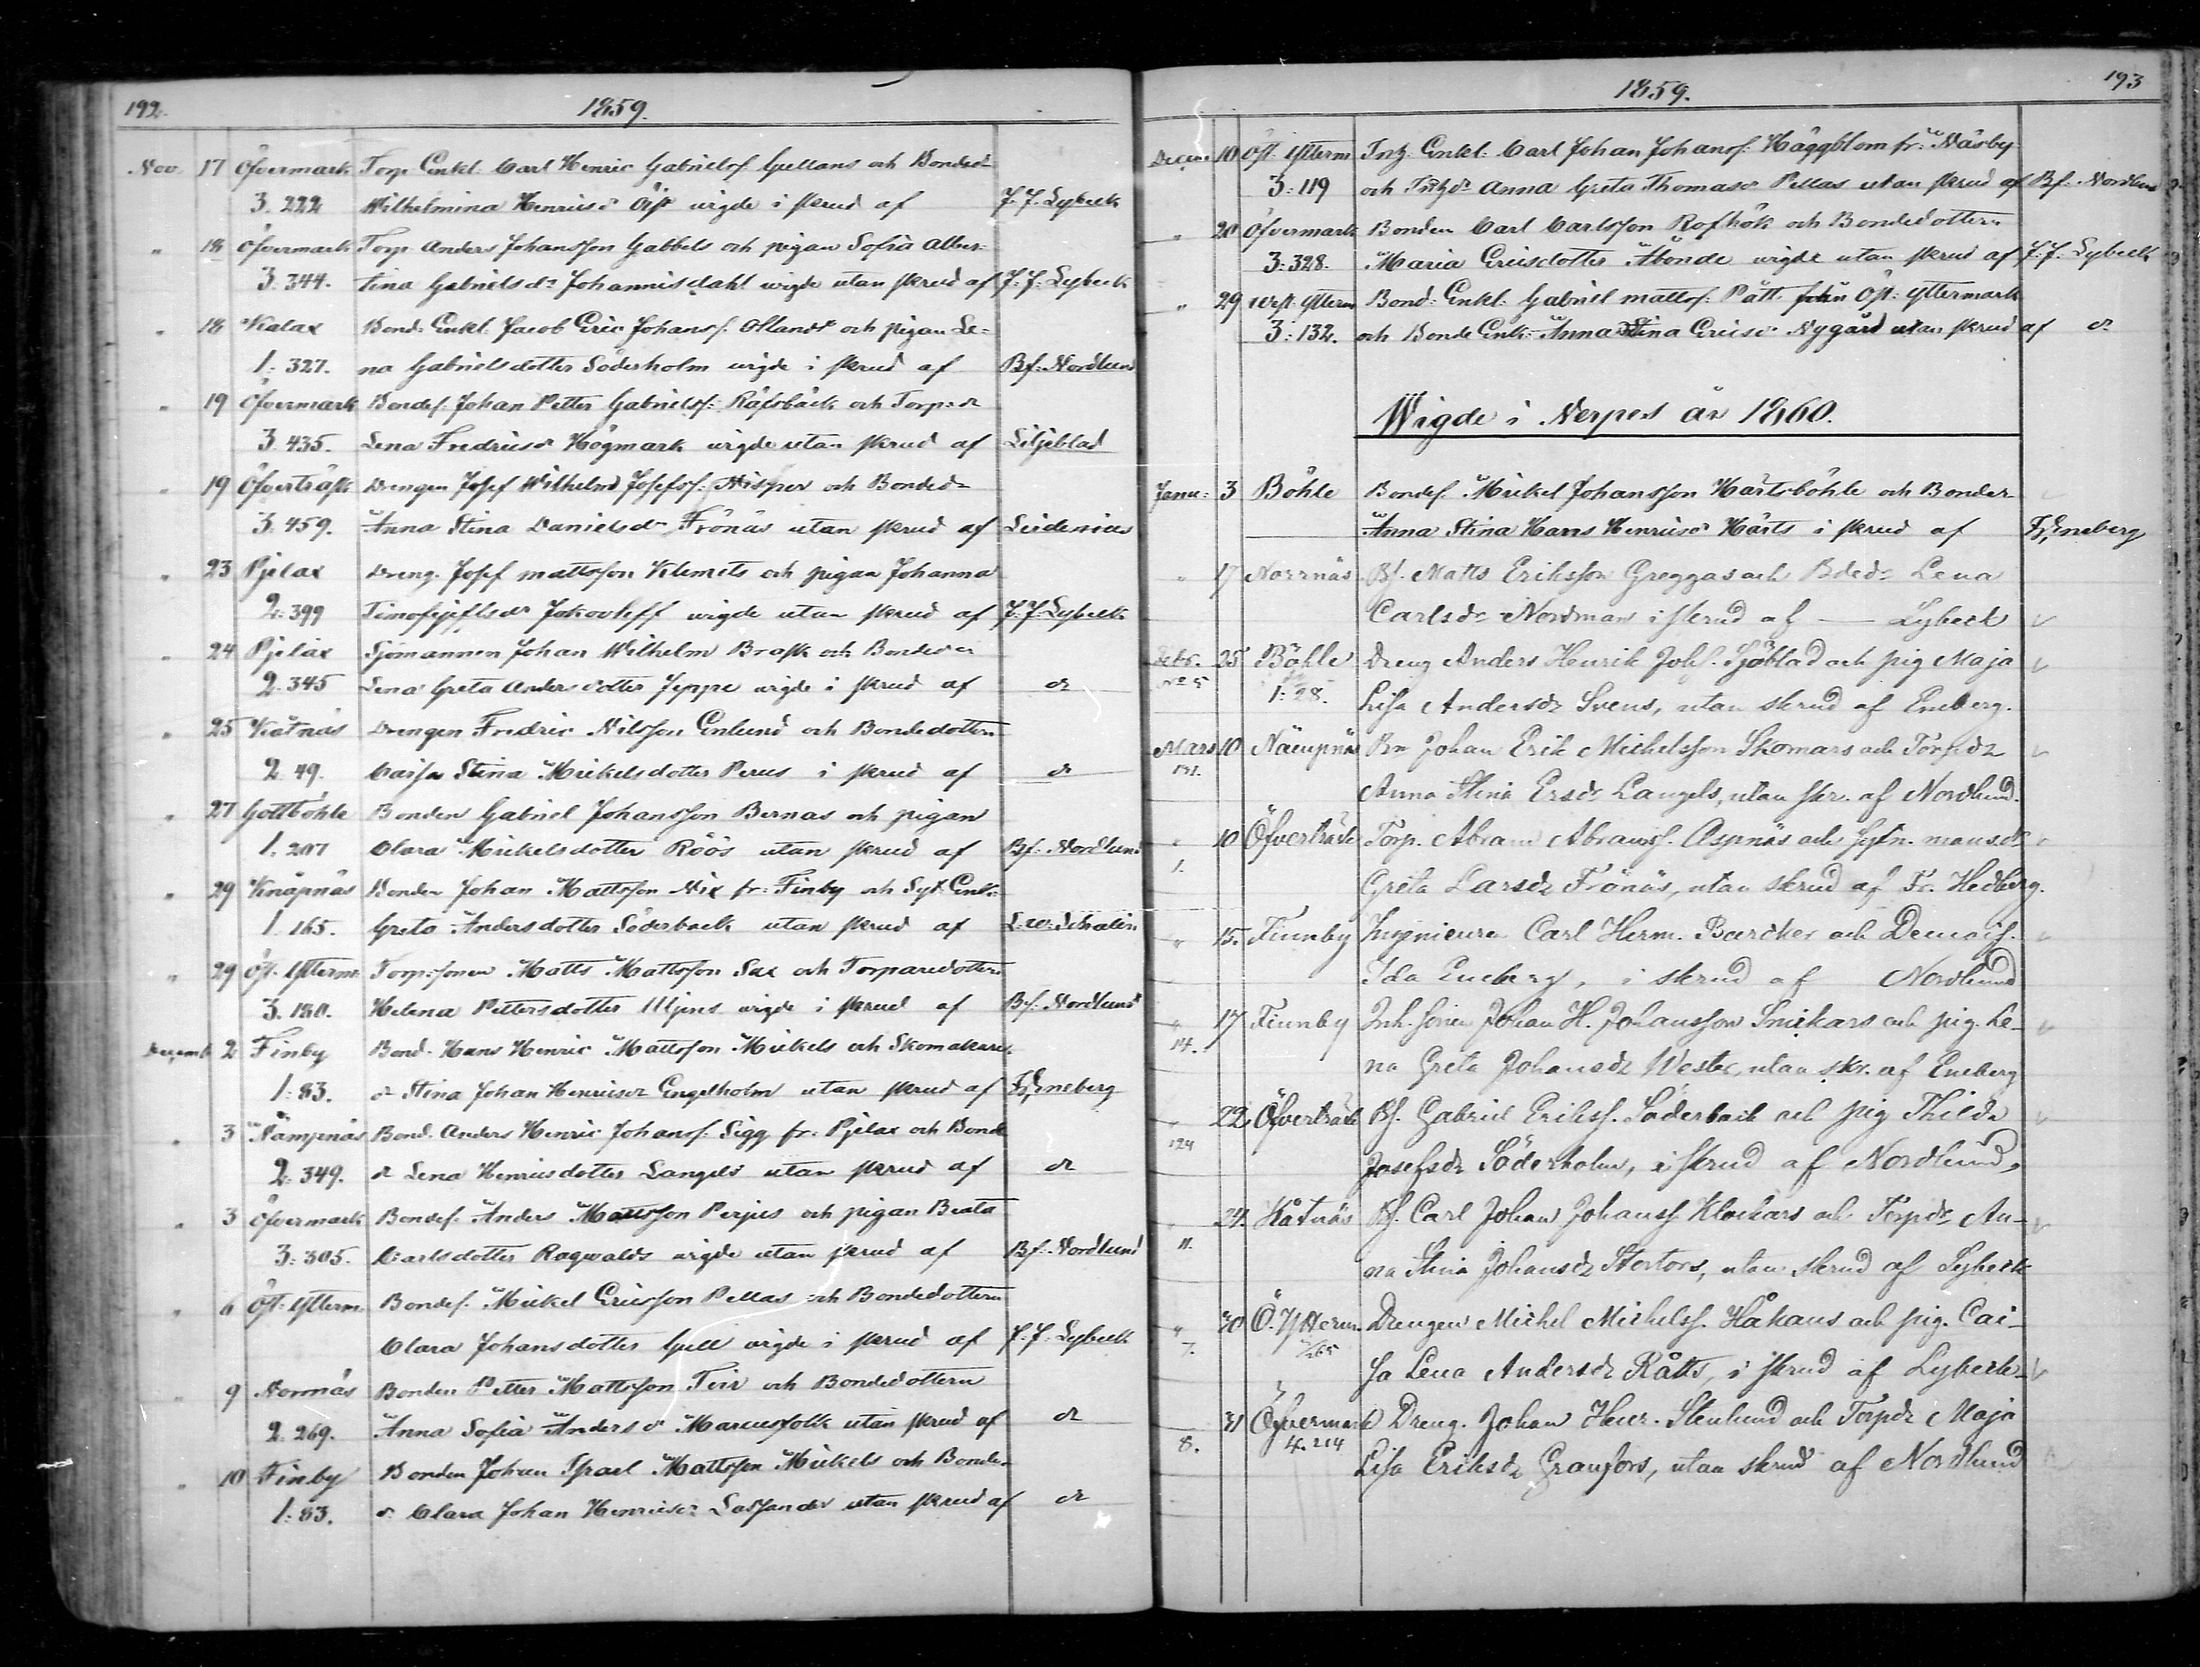 192.
1859.
Nov. 17 Öfvermark Torp. Enkl. Carl Henric Gabrielss. Gullans och Bonded:r
3. 222 Wilhelmina Henricsd:r Öist wigde i skrud af J. J. Lybeck
" 18 Öfvermark Torp. Anders Johansson Gabbels och pigan Sofia Alber-
3. 344. tina Gabrielsd:r Johannisdahl wigde utan skrud af J. J. Lybeck
" 18 Kalax Bond. Enkl. Jacob Eric Johanss. och pigan Le-
1. 327. na Gabrielsdotter Söderholm wigde i skrud af Bf. Nordlund
" 19 Öfvermark Bondes. Johan Petter Gabrielss. Räfsbäck och Torp:d:r
3. 435. Lena Fredricsd:r Högmark wigde utan skrud af Liljeblad
" 19 Öfverträsk Drengen Josef Wilhelm Josefss. Nisper och Bonded:r
3. 459. Anna Stina Danielsd:r Frönäs utan skrud af
" 23 Pjelax Dreng. Josef Mattsson Klemets och pigan Johanna
2. 399 Jakovleff wigde utan skrud af J. J. Lybeck
" 24 Pjelax Sjömannen Johan Wilhelm Brask och Bonded:r
2. 345 Lena Greta Anders dotter Jeppe wigde i skrud af d:o
" 25 Kåtnäs Drengen Fredric Nilsson Enlund och Bondedottern
2. 49. Caisa Stina Mickelsdotter Perus i skrud af d:o
" 27 Gottböhle Bonden Gabriel Johansson Bernas och pigan
1. 207 Clara Mickelsdotter Röös utan skrud af Bf. Nordlund
" 29 Knåpnäs Bonden Johan Mattsson Nix fr. Finby och Syt. Enk.
1. 165. Greta Andersdotter Söderback utan skrud af Schalin
" 29 Öst. Ytterm. Torp. sonen Matts Mattsson Sax och Torparedottern
3. 180. Helena Pettersdotter Uljens wigde i skrud af Bf. Nordlund
Decemb. 2 Finby Bond. Hans Henric Mattsson Mickels och Skomakare-
1: 83. d:r Stina Johan Henricsd:r Engelholm utan skrud af Fr. Eneberg
" 3 Nämpnäs Bond. Anders Henric Johanss. Sigg fr. Pjelax och Bonde
2. 349. d:r Lena Henricsdotter Langels utan skrud af d:o
" 3 Öfvermark Bondes. Anders Mattsson Perjus och pigan Beata
3: 305. Carlsdotter Ragwalds wigde utan skrud af Bf. Nordlund
" 6 Öst. Ytterm. Bondes. Mickel Ericsson Pellas och Bondedottern
Clara Johansdotter Gull wigde i skrud af J. J. Lybeck
" 9 Norrnäs Bonden Petter Mattsson och Bondedottern
2. 269. Anna Sofia Andersd:r Marcusfolk utan skrud af d:o
" 10 Finby Bonden Johan Israel Mattsson Mickels och Bonde-
1: 83. d:r Clara Johan Henricsd:r Lassander utan skrud af d:o
1859.
193
Decem. 10 Öst. Ytterm Enkl. Carl Johan Johanss. Häggblom fr. Näsby
3: 119 och Anna Greta Thomasd:r Pellas utan skrud af Bf. Nordlund
" 20 Öfvermark Bonden Carl Carlsson Rofhök och Bondedottern
3: 328. Maria Ericsdotter Åbonde wigde utan skrud af J. J. Lybeck
" 29 Vest. Ytterm Bond. Enkl. Gabriel Mattss. Pått från Öst. Yttermark
3: 132. och Bonde Enk. Anna Stina Ericsd:r Nygård utan skrud af d:o
Wigde i Nerpes år 1860.
Janu: 3 Böhle Bondes. Mickel Johansson Härtsböhle och Bonde:r
Anna Stina Hans Henricsd:r Härts i skrud af Fr. Eneberg
" 17 Norrnäs Bs. Matts Eriksson Greggas och Bded:r Lena
Carlsd:r Nordman i skrud af — Lybeck
Febr. 25 Böhle Dreng Anders Henrik Johs. Sjöblad och pig Maja
N:o 5 1: 28. Lisa Andersd:r Svens, utan skrud af Eneberg.
Mars 10 Nämpnäs Bn Johan Erik Michelsson Skomars och Torpd:r
131. Anna Stina Ersd:r Langels, utan skr. af Nordlund.
" 10 Öfverträsk Torp. Abram Abramss. Aspnäs och Sytn. mansd:r
1. Greta Larsd:r Frönäs, utan skrud af Fr. Hedberg.
" 15. Finnby Ingenieuren Carl Herm. Barcker och Demois.
Ida Eneberg, i skrud af Nordlund
" 17 Finnby Inh. sonen Johan H. Johansson Snickars och pig. Le-
14. na Greta Johansd:r Wester, utan skr. af Eneberg
" 22 Öfverträsk Bs. Gabriel Erikss. Söderback och pig Thilda
124 Josefsd:r Söderholm, i skrud af Nordlund.
" 24. Kåtnäs Bs. Carl Johan Johanss. Klockars och Torpd:r An-
11. na Stina Johansd:r Stortors, utan skrud af Lybeck
" 30 Ö. Ytterm. Drengen Michel Michelss. Håkans och pig. Cai-
7. sa Lena Andersd:r Rått, i skrud af Lybeck
31 Öfvermark Dreng. Johan Henr. Stenlund och Torpd:r Maja
8. 4. 214 Lisa Eriksd:r Granfors, utan skrud af Nordlund